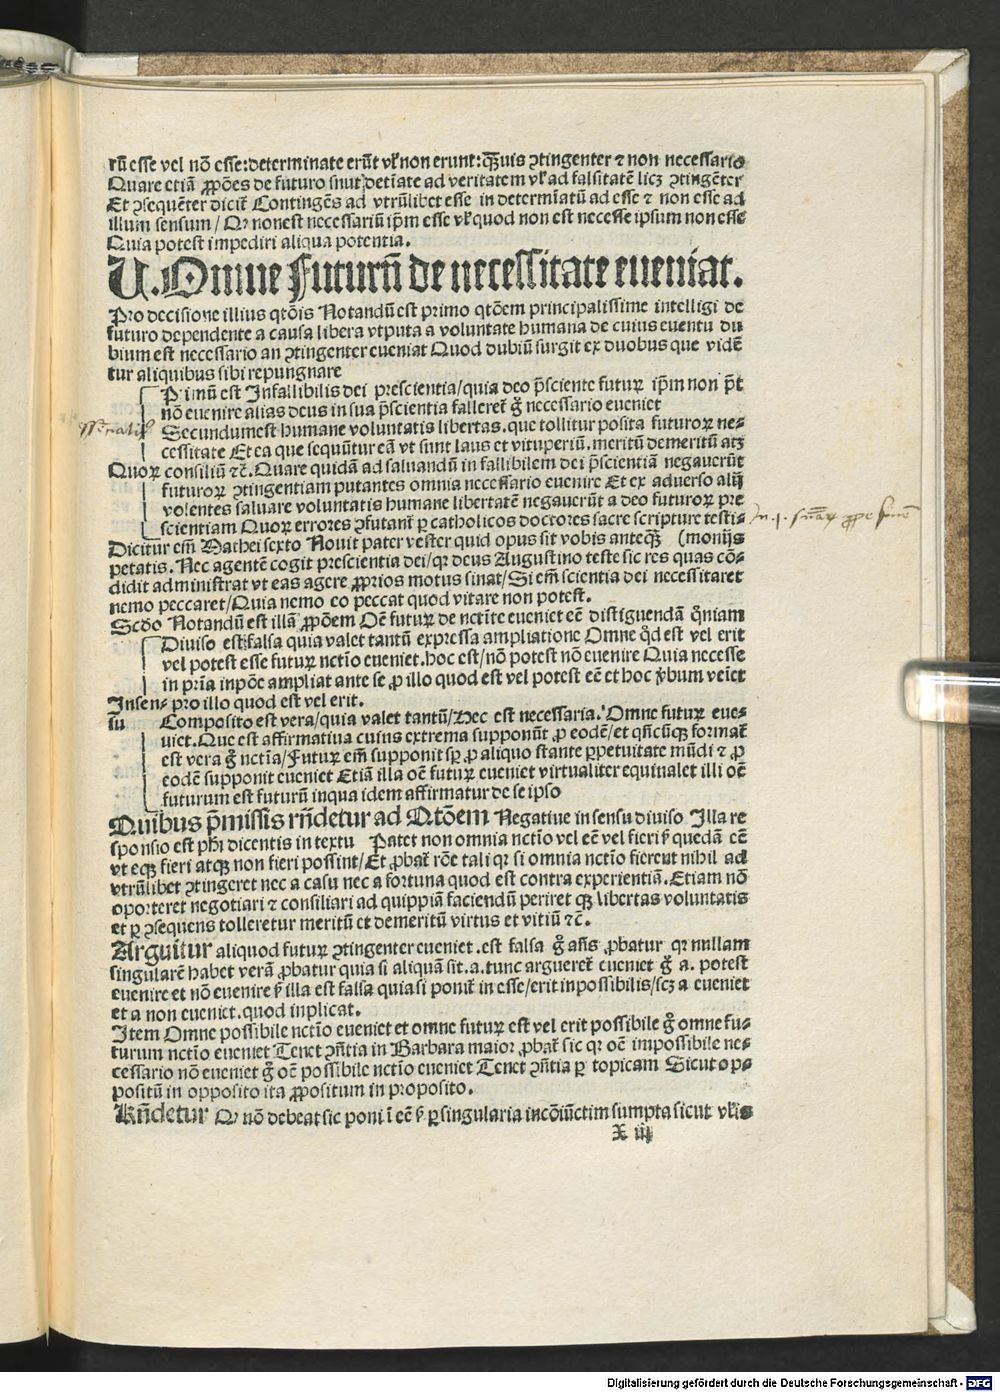 rũ esse vel nõ esse: determinate erũt vl' non erunt: q̃uis ꝯtingenter ⁊ non necessario
Quare etiã ꝓpões de futuro snut detĩate ad veritatem vl' ad falsitatẽ licꝫ ꝯtingẽter
Et ꝯsequẽter dicit̃ Contingẽs ad vtrũlibet esse in determĩatũ ad esse ⁊ non esse ad
illum sensum / Qꝛ non est necessariũ ip̃m esse vl' quod non est necesse ipsum non esse
Quia potest impediri aliqua potentia.
U. Omne Futurũ de necessitate eueniat.
Pro decisione illius qtõis Notandũ est primo qtõem principalissime intelligi de
futuro dependente a causa libera vtputa a voluntate humana de cuius euentu du
bium est necessario an ꝯtingenter eueniat Quod dubiũ surgit ex duobus que vidẽ
tur aliquibus sibi repungnare
Primũ est Infallibilis dei prescientia / quia deo p̃sciente futuꝝ ip̃m non p̃t
nõ euenire alias deus in sua p̃scientia falleret̃ g̃ necessario eueniet
Secundum est humane voluntatis libertas. que tollitur posita futuroꝝ ne⸗
cessitate Et ea que sequũtur eã vt sunt laus et vituperiũ, meritũ demeritũ atꝫ
Quoꝝ consiliũ ⁊c̃. Quare quidã ad saluandũ in fallibilem dei p̃scientiã negauerũt
futuroꝝ ꝯtingentiam putantes omnia necessario euenire Et ex aduerso alij
volentes saluare voluntatis humane libertatẽ negauerũt a deo futuroꝝ pre
scientiam Quoꝝ errores ꝯfutant̃ ꝑ catholicos doctores sacre scripture testi⸗
Dicitur em̃ Mathei sexto Nouit pater vester quid opus sit vobis anteq̃ꝫ (monijs
petatis. Nec agentẽ cogit prescientia dei / qꝛ deus Augustino teste sic res quas cõ⸗
didit administrat vt eas agere ꝓprios motus sinat / Si em̃ scientia dei necessitaret
nemo peccaret / Quia nemo eo peccat quod vitare non potest.
Scd̃o Notandũ est illã ꝓpõem Oẽ futuꝝ de nctĩte eueniet eẽ distiguendã q̃niam
Diuiso est falsa quia valet tantũ expressa ampliatione Omne q̃d est vel erit
vel potest esse futuꝝ nctĩo eueniet. hoc est / nõ potest nõ euenire Quia necesse
in pr̃ia inpõe ampliat ante se ꝓ illo quod est vel potest eẽ et hoc v̉bum veĩet
In sen⸗ pro illo quod est vel erit.
su Composito est vera / quia valet tantũ / Hec est necessaria. Omne futuꝝ eue⸗
niet. Que est affirmatiua cuius extrema supponũt ꝓ eodẽ / et qñcũqꝫ format̃
est vera g̃ nctĩa / Futuꝝ em̃ supponit sꝑ ꝓ aliquo stante ꝑpetuitate mũdi ⁊ ꝓ
eodẽ supponit eueniet Etiã illa oẽ futuꝝ eueniet virtualiter equiualet illi oẽ
futurum est futurũ inqua idem affirmatur de se ipso
Quibus p̃missis rñdetur ad Qtõem Negatiue in sensu diuiso Illa re
sponsio est ph̃i dicentis in textu Patet non omnia nctĩo vel eẽ vel fieri s̉ quedã eẽ
vt eqꝫ fieri atqꝫ non fieri possint / Et ꝓbat̃ rõe tali qꝛ si omnia nctĩo fierent nihil ad
vtrũlibet ꝯtingeret nec a casu nec a fortuna quod est contra experientiã. Etiam nõ
oporteret negotiari ⁊ consiliari ad quippiã faciendũ periret qꝫ libertas voluntatis
et ꝑ ꝯsequens tolleretur meritũ et demeritũ virtus et vitiũ ⁊c̃.
Arguitur aliquod futuꝝ ꝯtingenter eueniet. est falsa g̃ añs ꝓbatur qꝛ nullam
singularẽ habet verã ꝓbatur quia si aliquã sit. a. tunc argueret̃ eueniet g̃ a. potest
euenire et nõ euenire s̉ illa est falsa quia si ponit̃ in esse / erit inpossibilis / scꝫ a eueniet
et a non eueniet. quod inplicat.
Item Omne possibile nctĩo eueniet et omne futuꝝ est vel erit possibile g̃ omne fu⸗
turum nctĩo eueniet Tenet ꝯñtia in Barbara maior ꝓbat̃ sic qꝛ oẽ impossibile ne⸗
cessario nõ eueniet g̃ oẽ possibile nctĩo eueniet Tenet ꝯñtia ꝑ topicam Sicut op⸗
positũ in opposito ita ꝓpositum in proposito.
Rñdetur Qꝛ nõ debeat sic poni ĩ eẽ s̉ ꝑ singularia incõiũctim sumpta sicut vl'is
X iij
Digitalisierung gefördert durch die Deutsche Forschungsgemeinschaft - DFG